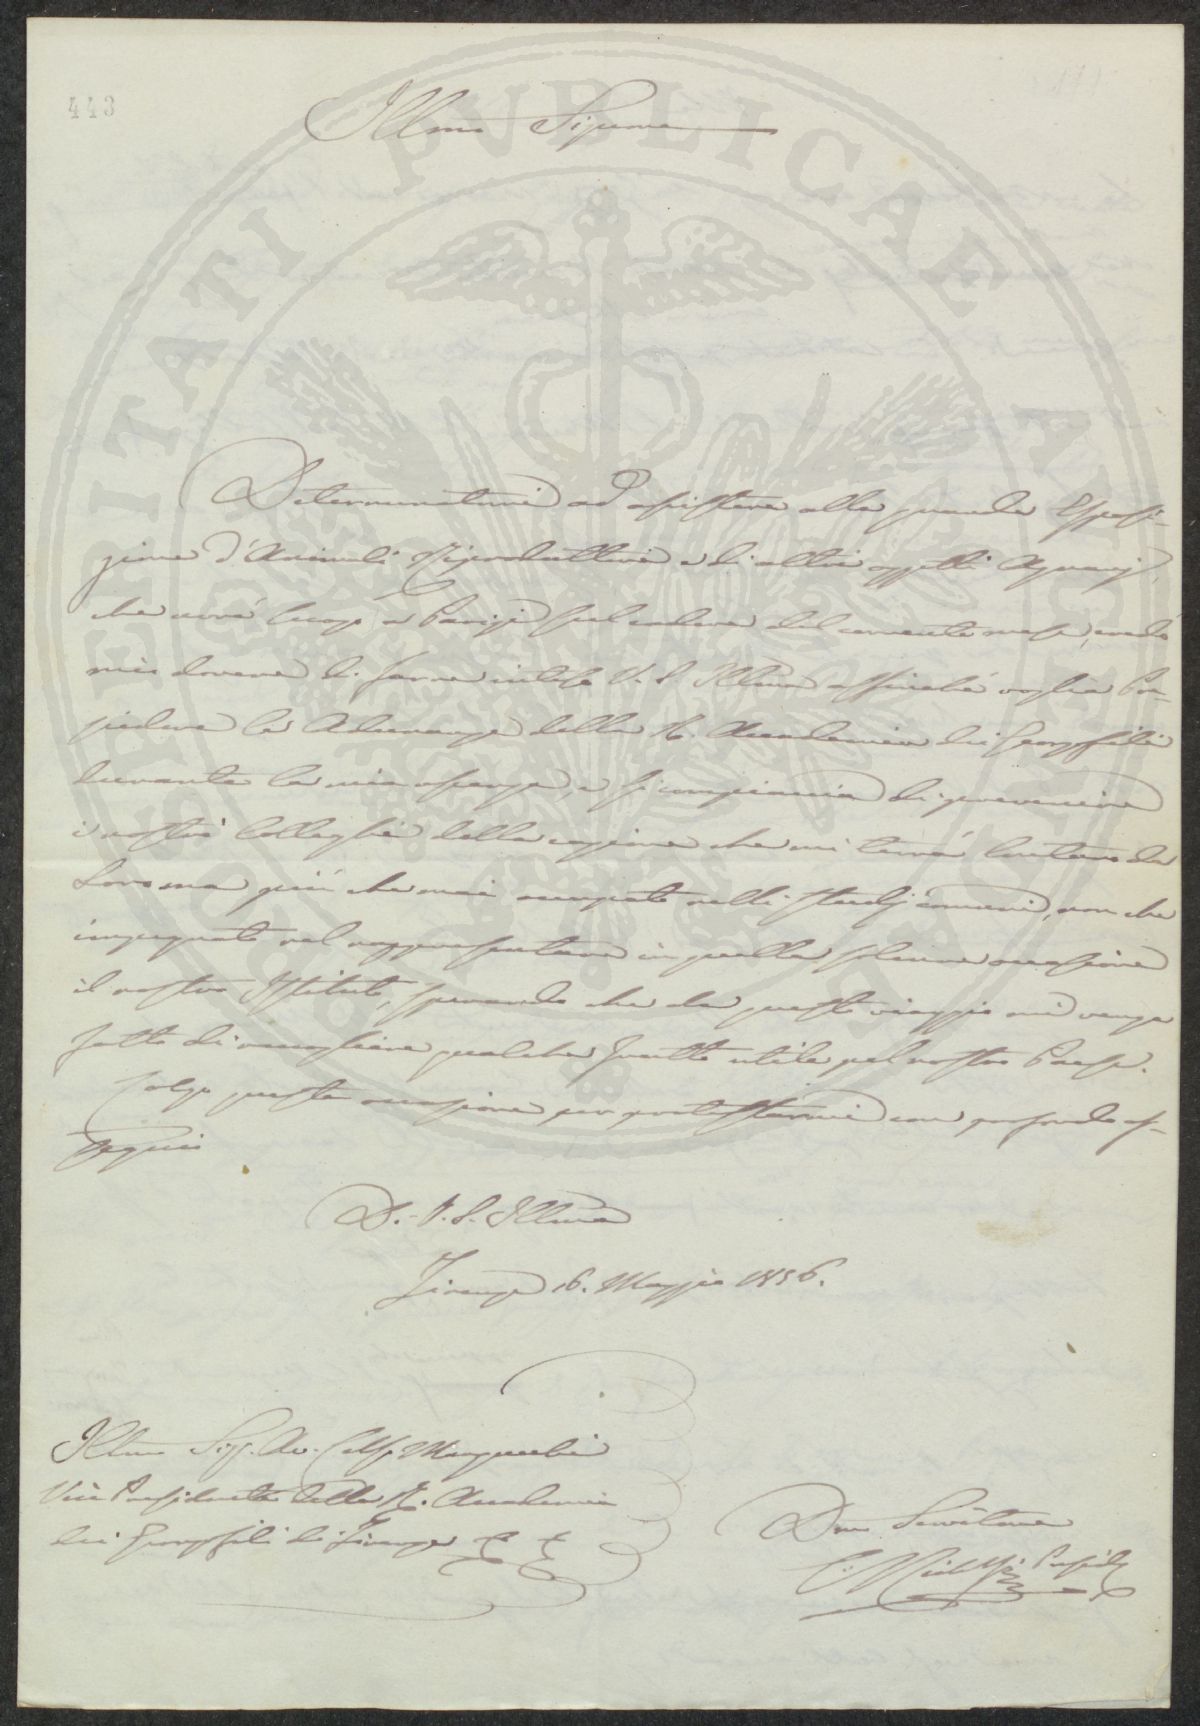 443
Illmo Signore
Determinatomi ad assistere alla grande Esposi-
zione d'Animali Riproduttori e di altri oggetti Agrarj,
che avrà luogo a Parigi sul cadere del corrente mese, credo
mio dovere di farne intesa V. S. Illma affinchè voglia Pre-
siedere le Adunanze della R. Accademia dei Georgofili
durante la mia assenza, e si compiaccia di prevenire
i nostri Colleghi della cagione che mi terrà lontano da
Loro ma più che mai occupato nelli studj comuni, non che
impegnato nel rappresentare in quella solenne occasione
il nostro Istituto, sperando che da questo viaggio mi venga
fatto di raccogliere qualche frutto utile pel nostro Paese.
Colgo questa occasione per protestarmi con profondo os-
sequio
D. V. S. Illma
Firenze 16. Maggio 1856.
Illmo Sig. Av. Celso Marzucchi
Vice Presidente della R. Accademia
dei Georgofili di Firenze
Dmo Servitore
C. Ridolfi Presid
PROSPERITATI PUBLICAE AUGENDAE